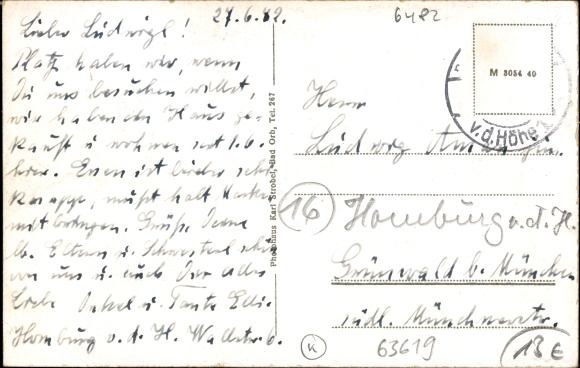 27.6.42.
6482
Lieber Ludwigl!
Platz haben wir, wenn
Du uns besuchen willst,
wir haben den Haus ge-
kauft u. wohnen seit 1.6.
hier. Essen ist leider sehr
knapp, mußt halt Marken
mitbringen. Grüße Deine
lb. Eltern u. Schwesterl
von uns u. auch Dir alles
Liebe Onkel u. Tante Elli.
Homburg v. d. H. Wallstr. 6.
Photohaus Karl Strobel, Bad Orb, Tel. 267
M 3054 40
v.d. Höhe
Herrn
Ludwig
16
Homburg v. d. H.
Grünwald b. München
südl. Münchnerstr.
K
63619
13€